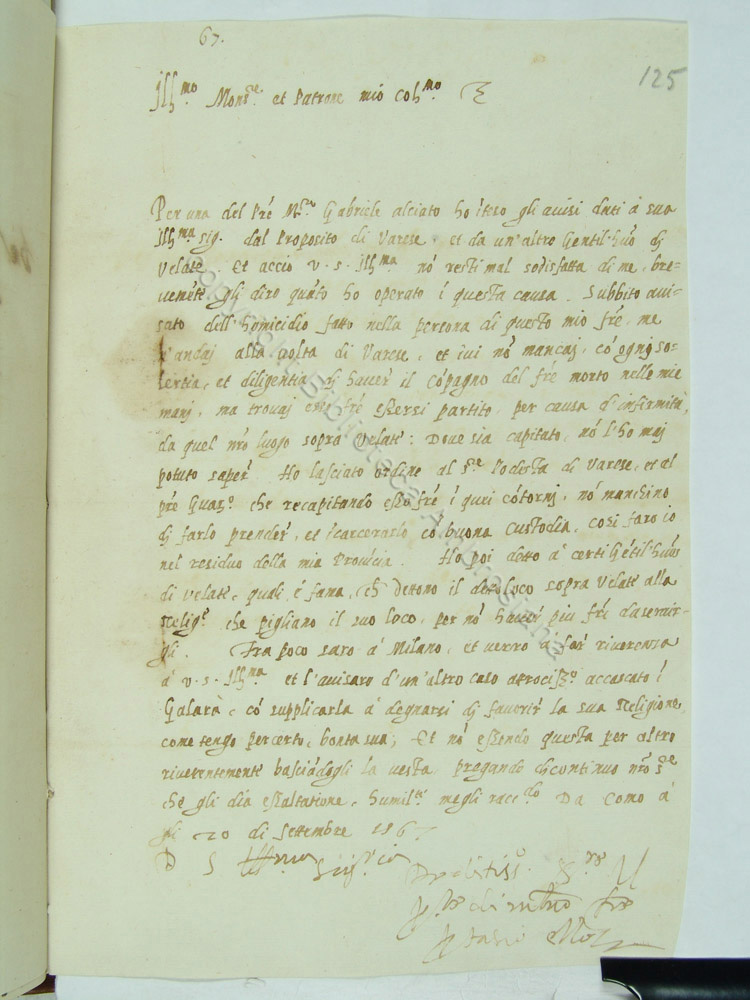 67.
125
Ill.mo Mons.re et Patrone mio Col.mo
Per una del Pré M.ro Gabriele alciato ho iteso gli auisi dati à sua
Ill.ma sig. dal Proposito di Varese, et da un'altro Gentil'huõ di
Velate. Et accio V. S. Ill.ma nõ resti mal sodisfatta di me, bre=
uemẽte gli diro quãto ho operato ĩ questa causa. Subbito aui=
sato dell'homicidio fatto nella persona di questo mio frẽ, me
n'andaj alla uolta di Varese, et iui nõ mancaj, cõ ognj so=
lertia, et diligentia dj hauer il cõpagno del frẽ morto nelle mie
manj, ma trouaj frẽ essersi partito, per causa d'infirmità,
da quel nrõ luogo sopra Velate: Doue sia capitato, nõ l'ho maj
potuto saper. Ho lasciato ordine al S.re Podestà di Varese, et al
prẽ Guar.o che recapitando esso frẽ ĩ quei cõtornj, nõ manchino
dj farlo prender, et ĩcarcerarlo cõ buona custodia, cosi faro io
nel residuo della mia Prouĩcia. Ho poi detto à certi Gẽtil'huõi
di Velate, quali é fama, ch dettono il detto loco sopra Velate alla
Relig.e che pigliano il suo loco, per nõ hauer piu frẽi da seruir=
gli. Fra poco saro à Milano, et uerro à far riuerenza
à V. S. Ill.ma et l'auisaro d'un'altro caso atrociss.o accascato ĩ
Galarà, cõ supplicarla à degnarsi dj fauerir la sua Religione,
come tengo percerto, bontà sua; Et nõ essendo questa per altro
riuerentemente basciãdogli la uesta pregando di continuo nrõ S.re
che gli dia essaltatione, humil.te megli racc.do Da Como à
gli 20 di Settembre 1567
D V S Ill.ma